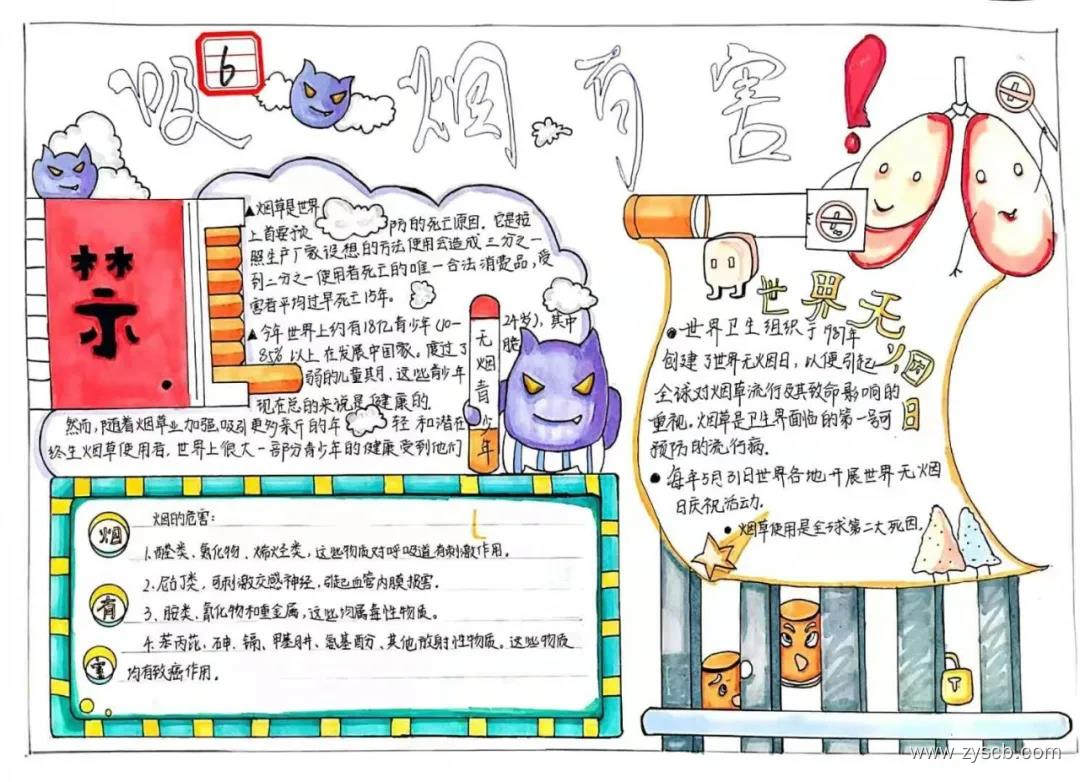 吸烟有害!
6
禁
▲烟草是世界
上首要予防的死亡原因。它是按
照生产厂家设想的方法使用会造成三分之一
到二分之一使用者死亡的唯一合法消费品,受
害者平均过早死亡15年。
▲今年世界上约有18亿青少年(10-24岁),其中
85%以上在发展中国家。度过了脆
弱的儿童其月,这些青少年
现在总的来说是健康的。
然而,随着烟草业加强吸引更多新斤的年轻和潜在
终生烟草使用者,世界上很大一部分青少年的健康受到他们
无烟青少年
烟有害
烟的危害:
1.醛类、氮化物、烯烃类,这些物质对呼吸道有刺激作用。
2.尼古丁类,可刺激交感神经,引起血管内膜损害。
3、胺类、氰化物和重金属,这些均属毒性物质。
4.苯丙芘、砷、镉、甲基肼、氨基酚、其他放射性物质。这些物质
均有致癌作用。
世界无烟日
●世界卫生组织于1987年
创建了世界无烟日,以便引起
全球对烟草流行及其致命影响的
重视。烟草是卫生界面临的第一号可
预防的流行病。
●每年5月31日世界各地开展世界无烟
日庆祝活动。
●烟草使用是全球第二大死因。
www.zyscb.com